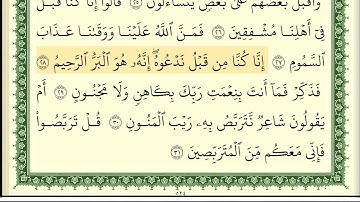 وَأَقْبَلَ بَعْضُهُمْ عَلَىٰ بَعْضٍ يَتَسَاءَلُونَ ٢٥ قَالُوا إِنَّا كُنَّا قَبْلُ
فِي أَهْلِنَا مُشْفِقِينَ ٢٦ فَمَنَّ اللَّهُ عَلَيْنَا وَوَقَىٰنَا عَذَابَ
السَّمُومِ ٢٧ إِنَّا كُنَّا مِن قَبْلُ نَدْعُوهُ إِنَّهُۥ هُوَ الْبَرُّ الرَّحِيمُ ٢٨
فَذَكِّرْ فَمَا أَنتَ بِنِعْمَتِ رَبِّكَ بِكَاهِنٍ وَلَا مَجْنُونٍ ٢٩ أَمْ
يَقُولُونَ شَاعِرٌ نَّتَرَبَّصُ بِهِۦ رَيْبَ الْمَنُونِ ٣٠ قُلْ تَرَبَّصُوا
فَإِنِّي مَعَكُم مِّنَ الْمُتَرَبِّصِينَ ٣١
٥٢٤